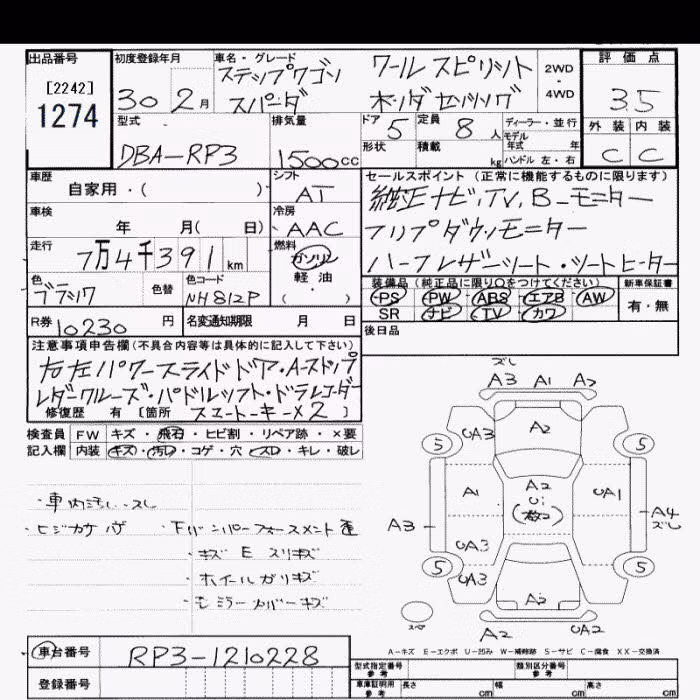 出品番号
[2242]
1274
初度登録年月
30 2月
車名・グレード
ステップワゴン ワールスピリット
スパーダ ホンダセンシング
2WD
・
4WD
評価点
3.5
外装 内装
C C
型式
DBA-RP3
排気量
1500cc
ドア 5
定員 8人
ディーラー・並行
モデル
年式 年
形状
積載 kg
ハンドル 左・右
車歴
自家用・( )
シフト
AT
車検
年 月( 日)
冷房
AAC
走行
7万4千391km
燃料
ガソリン
軽油
( )
色
ブラック
色替
色コード
NH812P
R券 10230円
名変通知期限 月 日
セールスポイント (正常に機能するものに限ります)
純正ナビ,TV,B-モニター
フリップダウンモニター
ハーフレザーシート・シートヒーター
装備品(純正品に限り○をつけてください)
PS PW ABS エアB AW
SR ナビ TV カワ
新車保証書
有・無
後日品
注意事項申告欄(不具合内容等は具体的に記入して下さい)
右左パワースライドドア・Aストップ
レダークルーズ・パドルシフト・ドラレコーダー
修復歴 有 [箇所 スマートキー×2 ]
検査員 FW キズ・飛石・ヒビ割・リペア跡・×要
記入欄 内装 キズ・汚れ・コゲ・穴・スレ・キレ・破レ
・車内汚レ・スレ
・ヒジカケ ハゲ
・下バンパーフォースメント歪
・キズ E スリキズ
・ホイルガリキズ
・左ミラーカバーキズ
ズレ
A3 A1 A2
5 UA3 A2 5
A1 A2 UA1
Ui
(数コ)
A3 A4
ズレ
UA3
5 UA3 A2 5
スペア
A2 UA2
A-キズ E-エクボ U-凹み W-補修跡 S-サビ C-腐食 XX-交換済
車台番号 RP3-1210228
登録番号
型式指定番号
参考
類別区分番号
参考
車庫証明用
参考
長さ cm 幅 cm 高さ cm